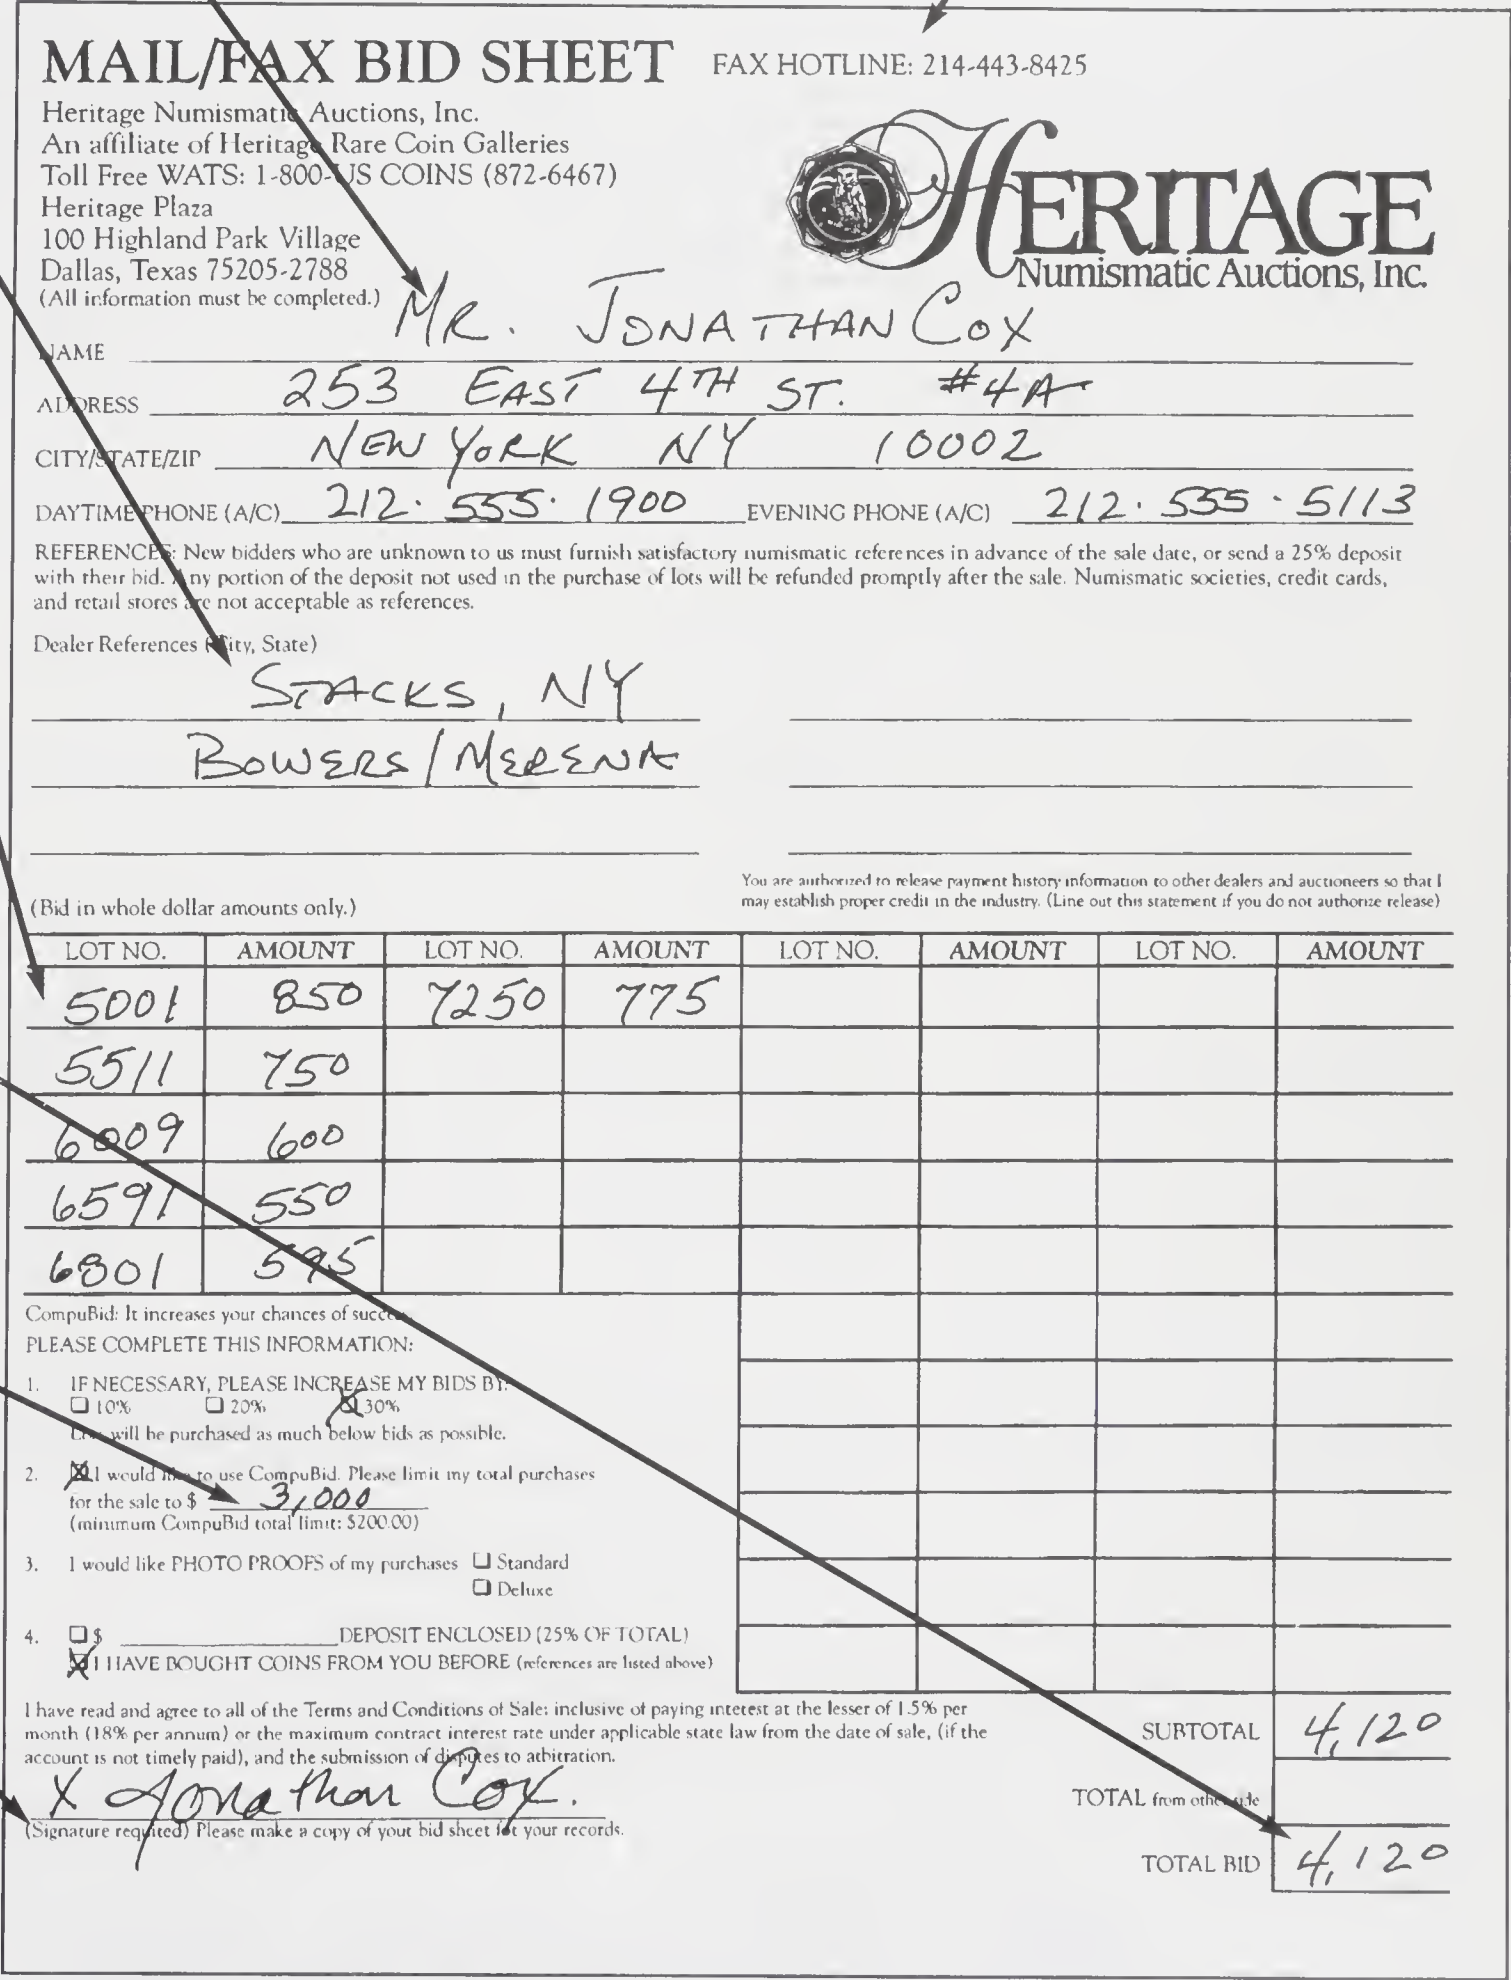 MAIL/FAX BID SHEET FAX HOTLINE: 214-443-8425
Heritage Numismatic Auctions, Inc.
An affiliate of Heritage Rare Coin Galleries
Toll Free WATS: 1-800-US COINS (872-6467)
Heritage Plaza
100 Highland Park Village
Dallas, Texas 75205-2788
(All information must be completed.)
HERITAGE
Numismatic Auctions, Inc.
NAME MR. JONATHAN COX
ADDRESS 253 EAST 4TH ST. #4A
CITY/STATE/ZIP NEW YORK NY 10002
DAYTIME PHONE (A/C) 212. 555. 1900 EVENING PHONE (A/C) 212. 555 - 5113
REFERENCES: New bidders who are unknown to us must furnish satisfactory numismatic references in advance of the sale date, or send a 25% deposit
with their bid. Any portion of the deposit not used in the purchase of lots will be refunded promptly after the sale. Numismatic societies, credit cards,
and retail stores are not acceptable as references.
Dealer References (City, State)
STACKS, NY
BOWERS/MERENA
You are authorized to release payment history information to other dealers and auctioneers so that I
may establish proper credit in the industry. (Line out this statement if you do not authorize release)
(Bid in whole dollar amounts only.)
LOT NO. AMOUNT LOT NO. AMOUNT LOT NO. AMOUNT LOT NO. AMOUNT
5001 850 7250 775
5511 750
6009 600
6591 550
6801 595
CompuBid: It increases your chances of success.
PLEASE COMPLETE THIS INFORMATION:
1. IF NECESSARY, PLEASE INCREASE MY BIDS BY:
10% 20% 30%
Lots will be purchased as much below bids as possible.
2. I would like to use CompuBid. Please limit my total purchases
for the sale to $ 3,000
(minimum CompuBid total limit: $200.00)
3. I would like PHOTO PROOFS of my purchases Standard
Deluxe
4. $ DEPOSIT ENCLOSED (25% OF TOTAL)
I HAVE BOUGHT COINS FROM YOU BEFORE (references are listed above)
I have read and agree to all of the Terms and Conditions of Sale: inclusive of paying interest at the lesser of 1.5% per
month (18% per annum) or the maximum contract interest rate under applicable state law from the date of sale, (if the
account is not timely paid), and the submission of disputes to arbitration.
X Jonathan Cox.
(Signature required) Please make a copy of your bid sheet for your records.
SUBTOTAL 4,120
TOTAL from other side
TOTAL BID 4,120